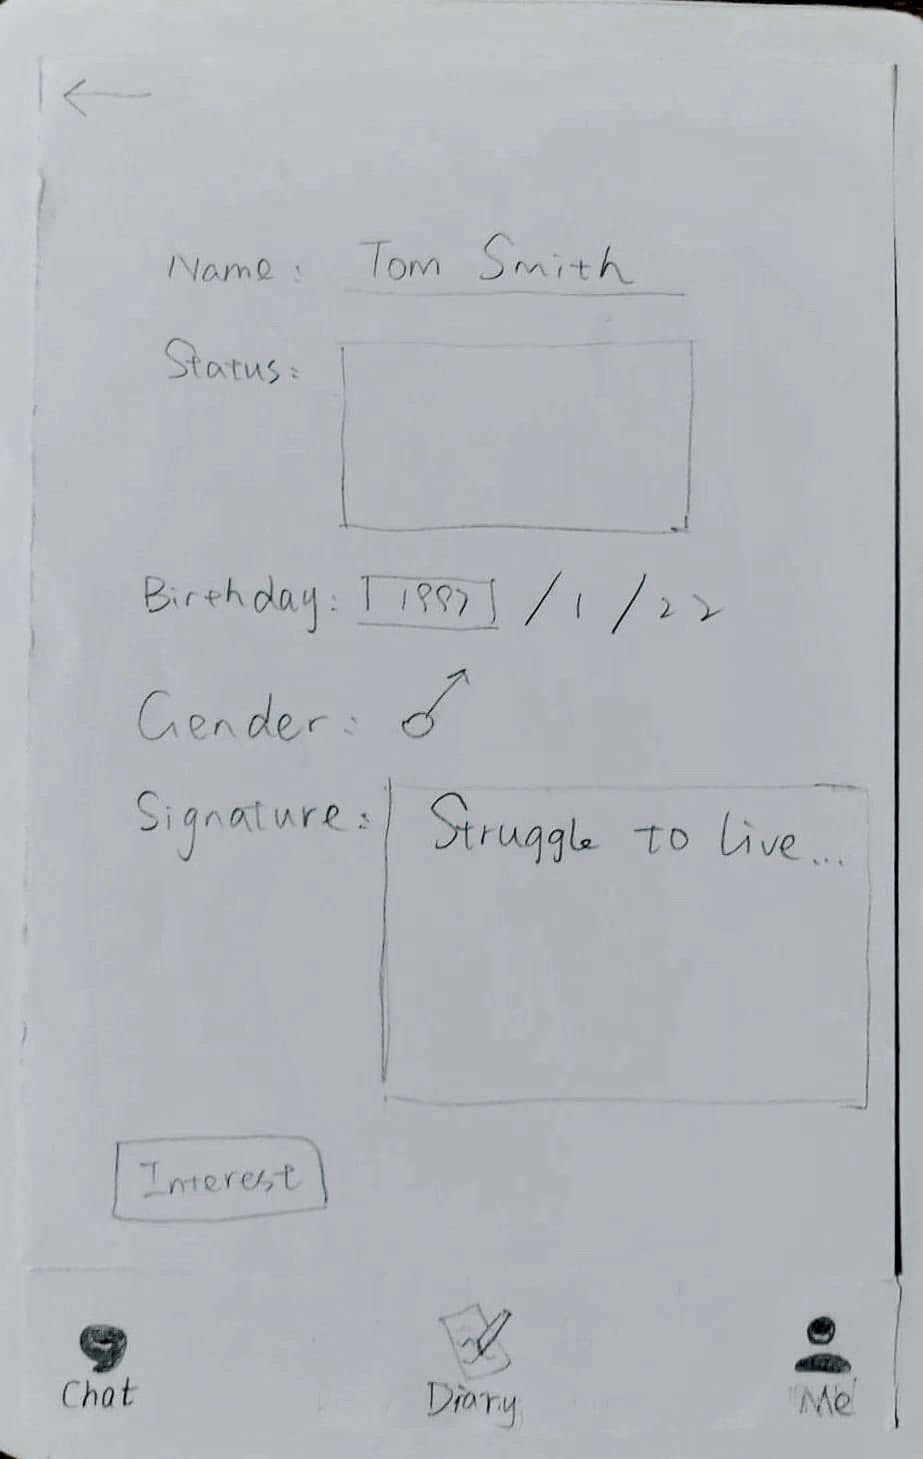 Name: Tom Smith
Status:
Birthday: 1997 / 1 / 22
Gender: ♂
Signature: Struggle to live...
Interest
Chat Diary Me